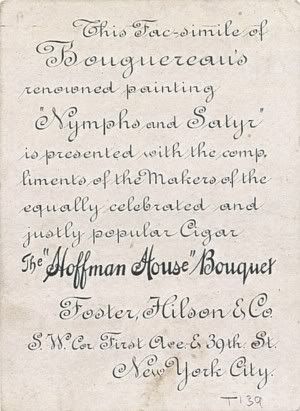 This Fac-simile of
Bouguereau's
renowned painting
"Nymphs and Satyr"
is presented with the comp,
liments of the Makers of the
equally celebrated and
justly popular Cigar
The "Hoffman House" Bouquet
Foster, Hilson & Co
S. W. Cor First Ave. & 39th. St.
New York City.
T139